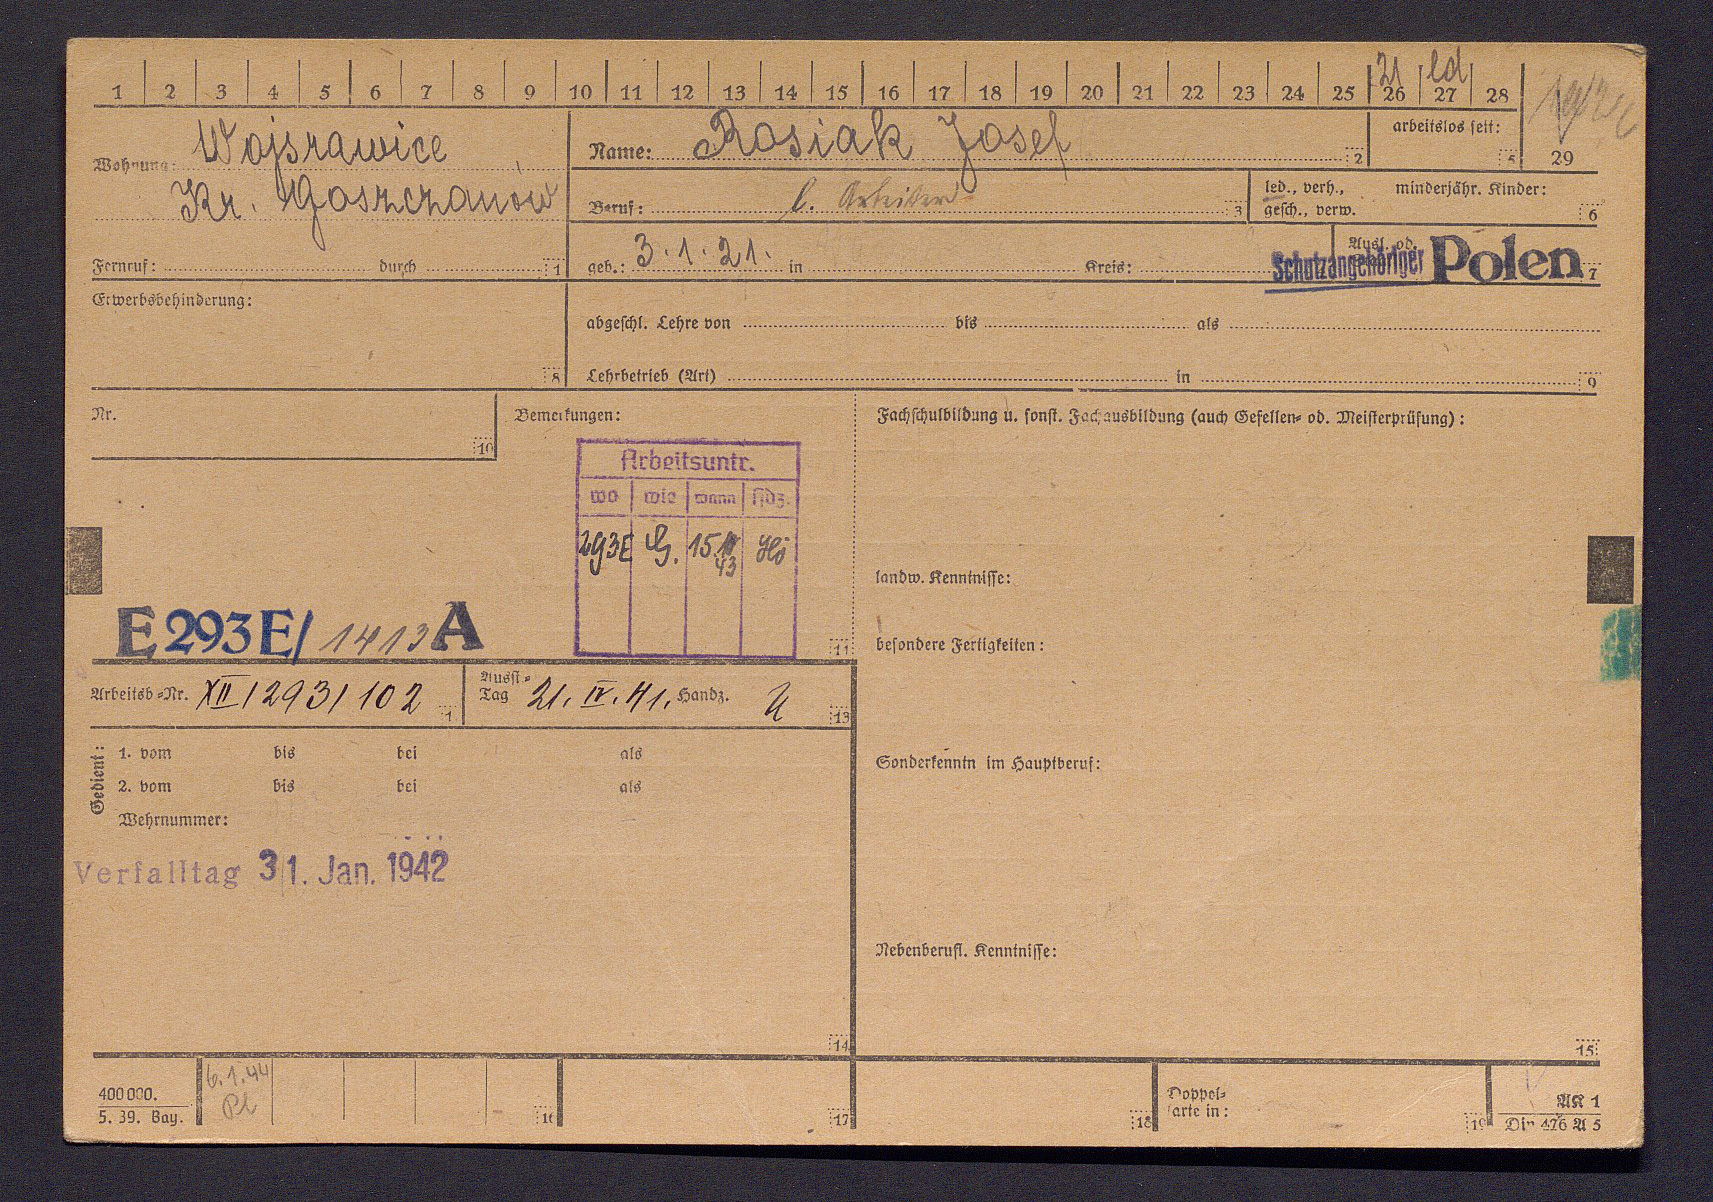 1 2 3 4 5 6 7 8 9 10 11 12 13 14 15 16 17 18 19 20 21 22 23 24 25 26 27 28 29
21 ld
Wohnung: Wojsrawice
Kr. Goszczanów
Fernruf: durch 1
Name: Rosiak Josef 2
arbeitslos seit: 5
Beruf: l. Arbeiter 3
led., verh., minderjähr. Kinder:
gesch., verw. 6
geb.: 3.1.21. in Kreis:
Ausl. od.
Schutzangehöriger Polen 7
Erwerbsbehinderung: 8
abgeschl. Lehre von bis als
Lehrbetrieb (Art) in 9
Nr. 10
Bemerkungen:
Arbeitsuntr.
wo wie wann Hdz.
293E 15 43
E 293 E/ 1413 A 11
Fachschulbildung u. sonst. Fachausbildung (auch Gesellen- od. Meisterprüfung):
landw. Kenntnisse:
besondere Fertigkeiten:
Sonderkenntn im Hauptberuf:
Nebenberufl. Kenntnisse:
15
Arbeitsb-Nr. XII/293/102
Ausst-
Tag 21. IV. 41. Handz. 13
Gedient:
1. vom bis bei als
2. vom bis bei als
Wehrnummer:
Verfalltag 31. Jan. 1942
14
400000.
5. 39. Bay.
6.1.44
Pl
16
17
18
Doppel-
karte in: 19
AK 1
Din 476 A 5